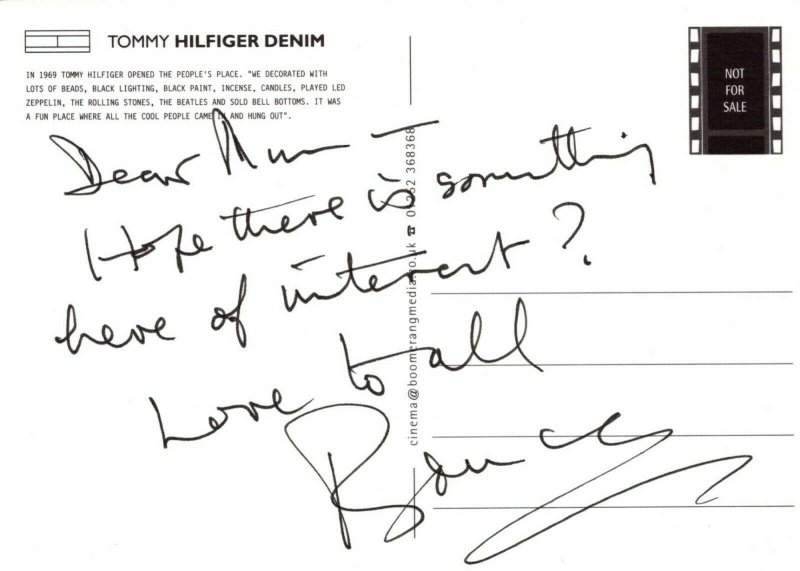 TOMMY HILFIGER DENIM
IN 1969 TOMMY HILFIGER OPENED THE PEOPLE'S PLACE. "WE DECORATED WITH
LOTS OF BEADS, BLACK LIGHTING, BLACK PAINT, INCENSE, CANDLES, PLAYED LED
ZEPPELIN, THE ROLLING STONES, THE BEATLES AND SOLD BELL BOTTOMS. IT WAS
A FUN PLACE WHERE ALL THE COOL PEOPLE CAME IN AND HUNG OUT".
NOT
FOR
SALE
Dear
Hope there is something
here of interest?
Love to all
cinema@boomerangmedia.co.uk ☎ 01252 368368